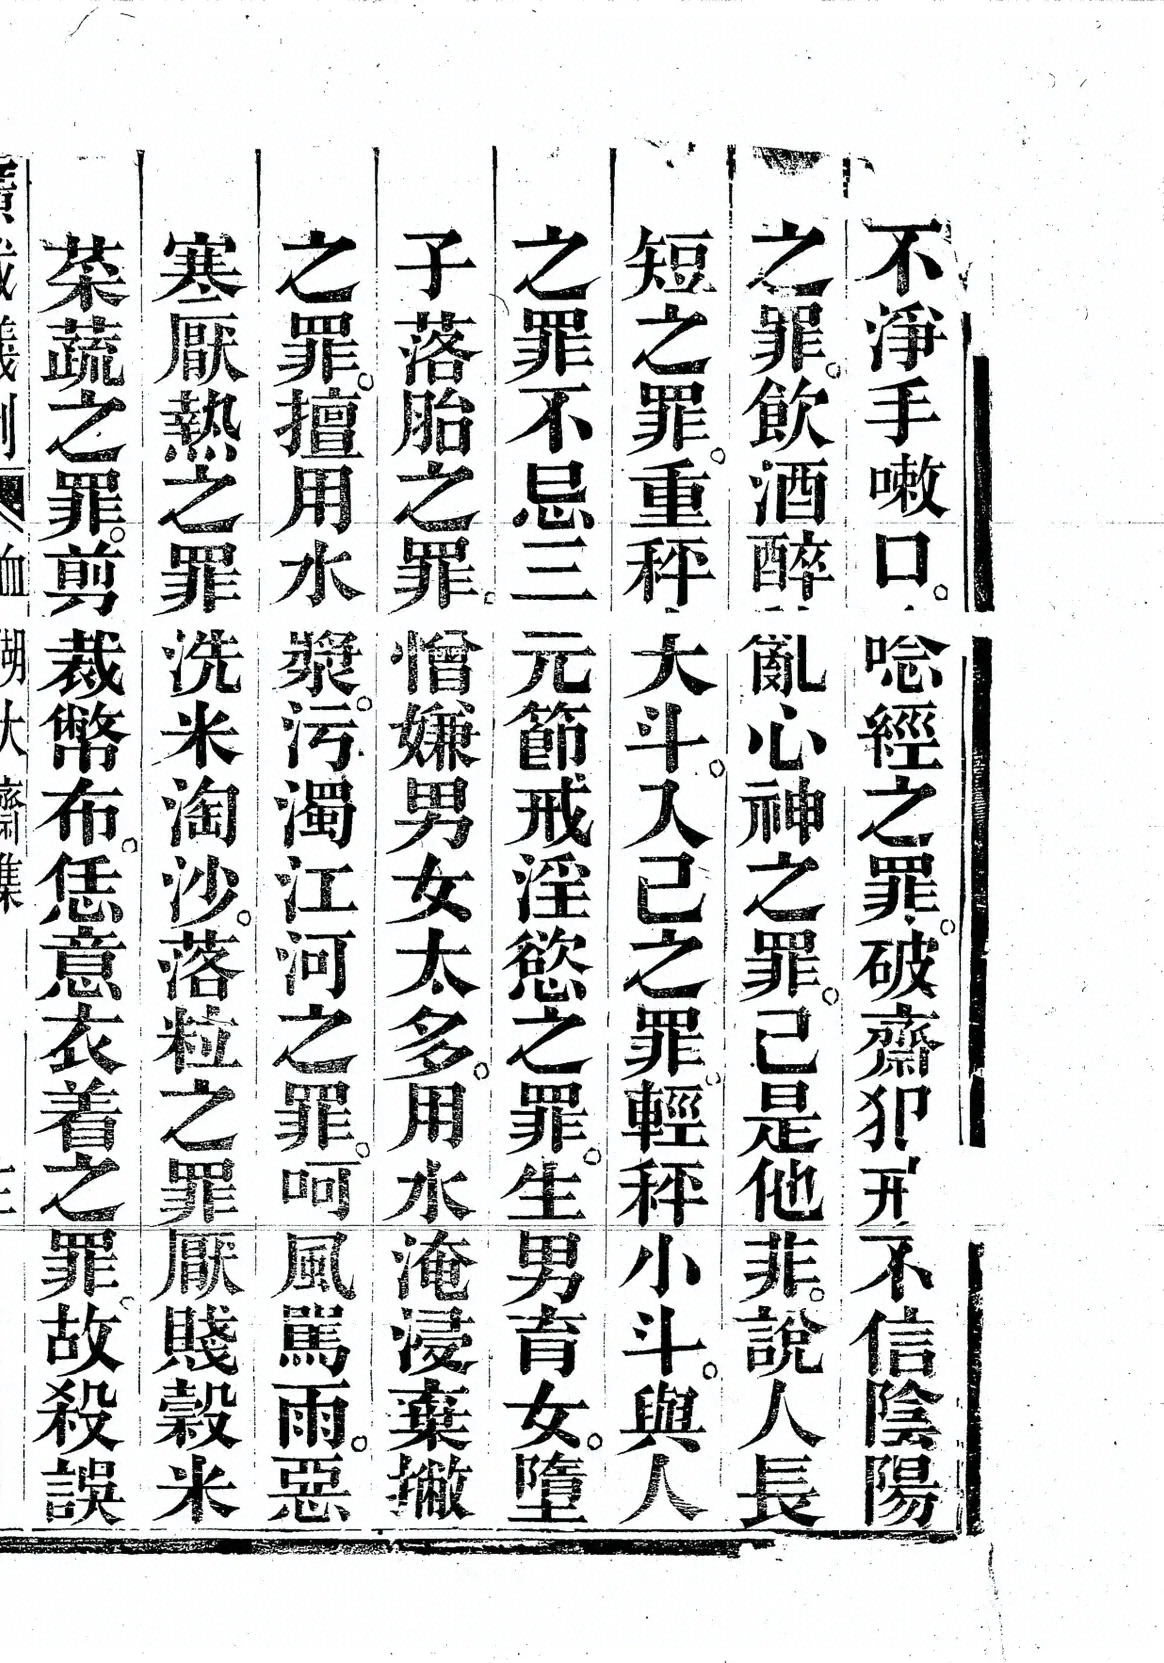 不淨手嗽口。唸經之罪。破齋犯刑不信陰陽
之罪。飲酒醉亂心神之罪。己是他非。說人長
短之罪。重秤大斗。入己之罪。輕秤小斗。與人
之罪不忌三元節戒淫慾之罪。生男育女。墮
子落胎之罪。憎嫌男女太多。用水淹浸棄撇
之罪。擅用水漿。污濁江河之罪。呵風罵雨。惡
寒厭熱之罪洗米淘沙。落粒之罪厭賤穀米
菜蔬之罪。剪裁幣布。恁意衣着之罪。故殺誤
血湖大齋集